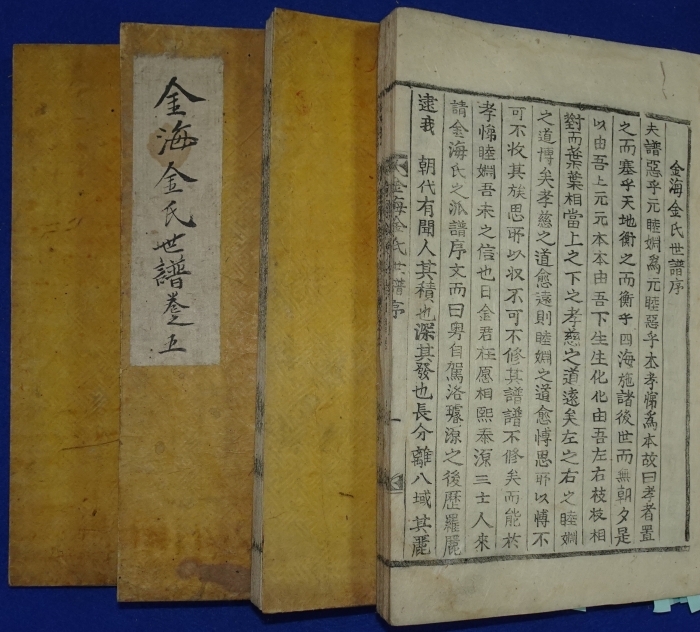 金海金氏世譜序
夫譜惡乎元睦婣爲元睦惡乎本孝悌爲本故曰孝者置
之而塞乎天地衡之而衡乎四海施諸後世而無朝夕是
以由吾上元元本本由吾下生生化化由吾左右枝枝相
對而葉葉相當上之下之孝慈之道遠矣左之右之睦婣
之道博矣孝慈之道愈遠則睦婣之道愈博思所以博不
可不收其族思所以収不可不修其譜譜不修矣而能於
孝悌睦婣吾未之信也日金君在愿相熙泰源三士人来
請金海氏之派譜序文而曰奧自駕洛璿源之後歷羅麗
逮我 朝代有聞人其積也深其發也長分離八域其麗
金海金氏世譜序 一
金海金氏世譜卷之五